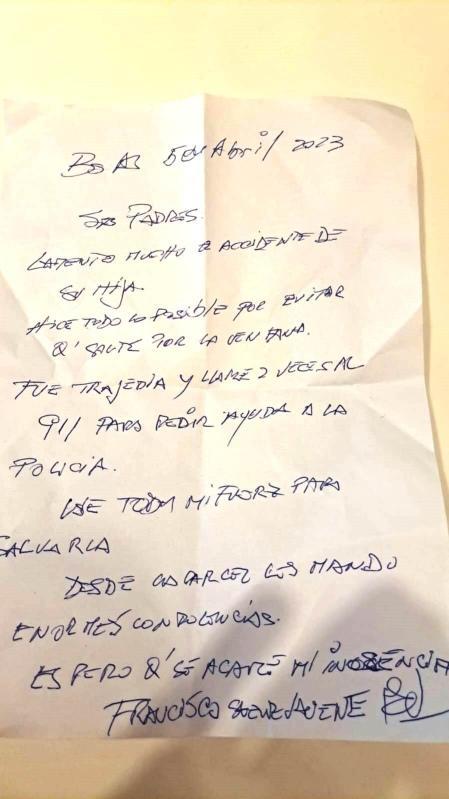 Bs As 5 en Abril/2023
SRS PADRES.
LAMENTO MUCHO EL ACCIDENTE DE
SU HIJA.
HICE TODO LO POSIBLE POR EVITAR
Q' SALTE POR LA VENTANA.
FUE TRAJEDIA Y LLAME 2 VECES AL
911 PARA PEDIR AYUDA A LA
POLICIA.
USE TODA MI FUERZ PARA
SALVARLA
DESDE LA CARCEL LES MANDO
ENORMES CONDOLENCIAS.
ESPERO Q' SE ACLARE MI INOSENCIA
FRANCISCO